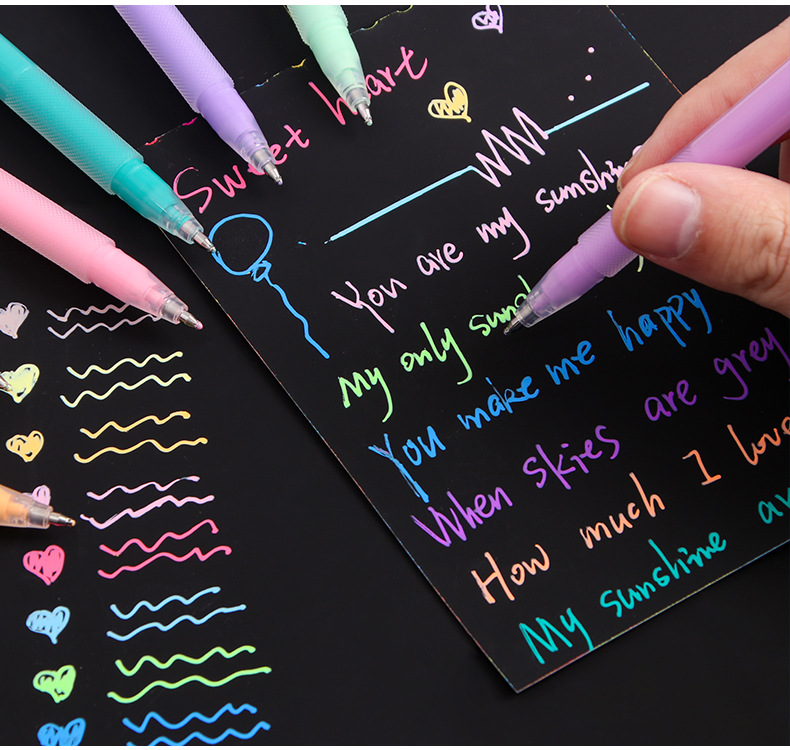 Sweet heart
You are my sunshine
My only
You make me happy
When skies are grey
How much I love
My sunshine